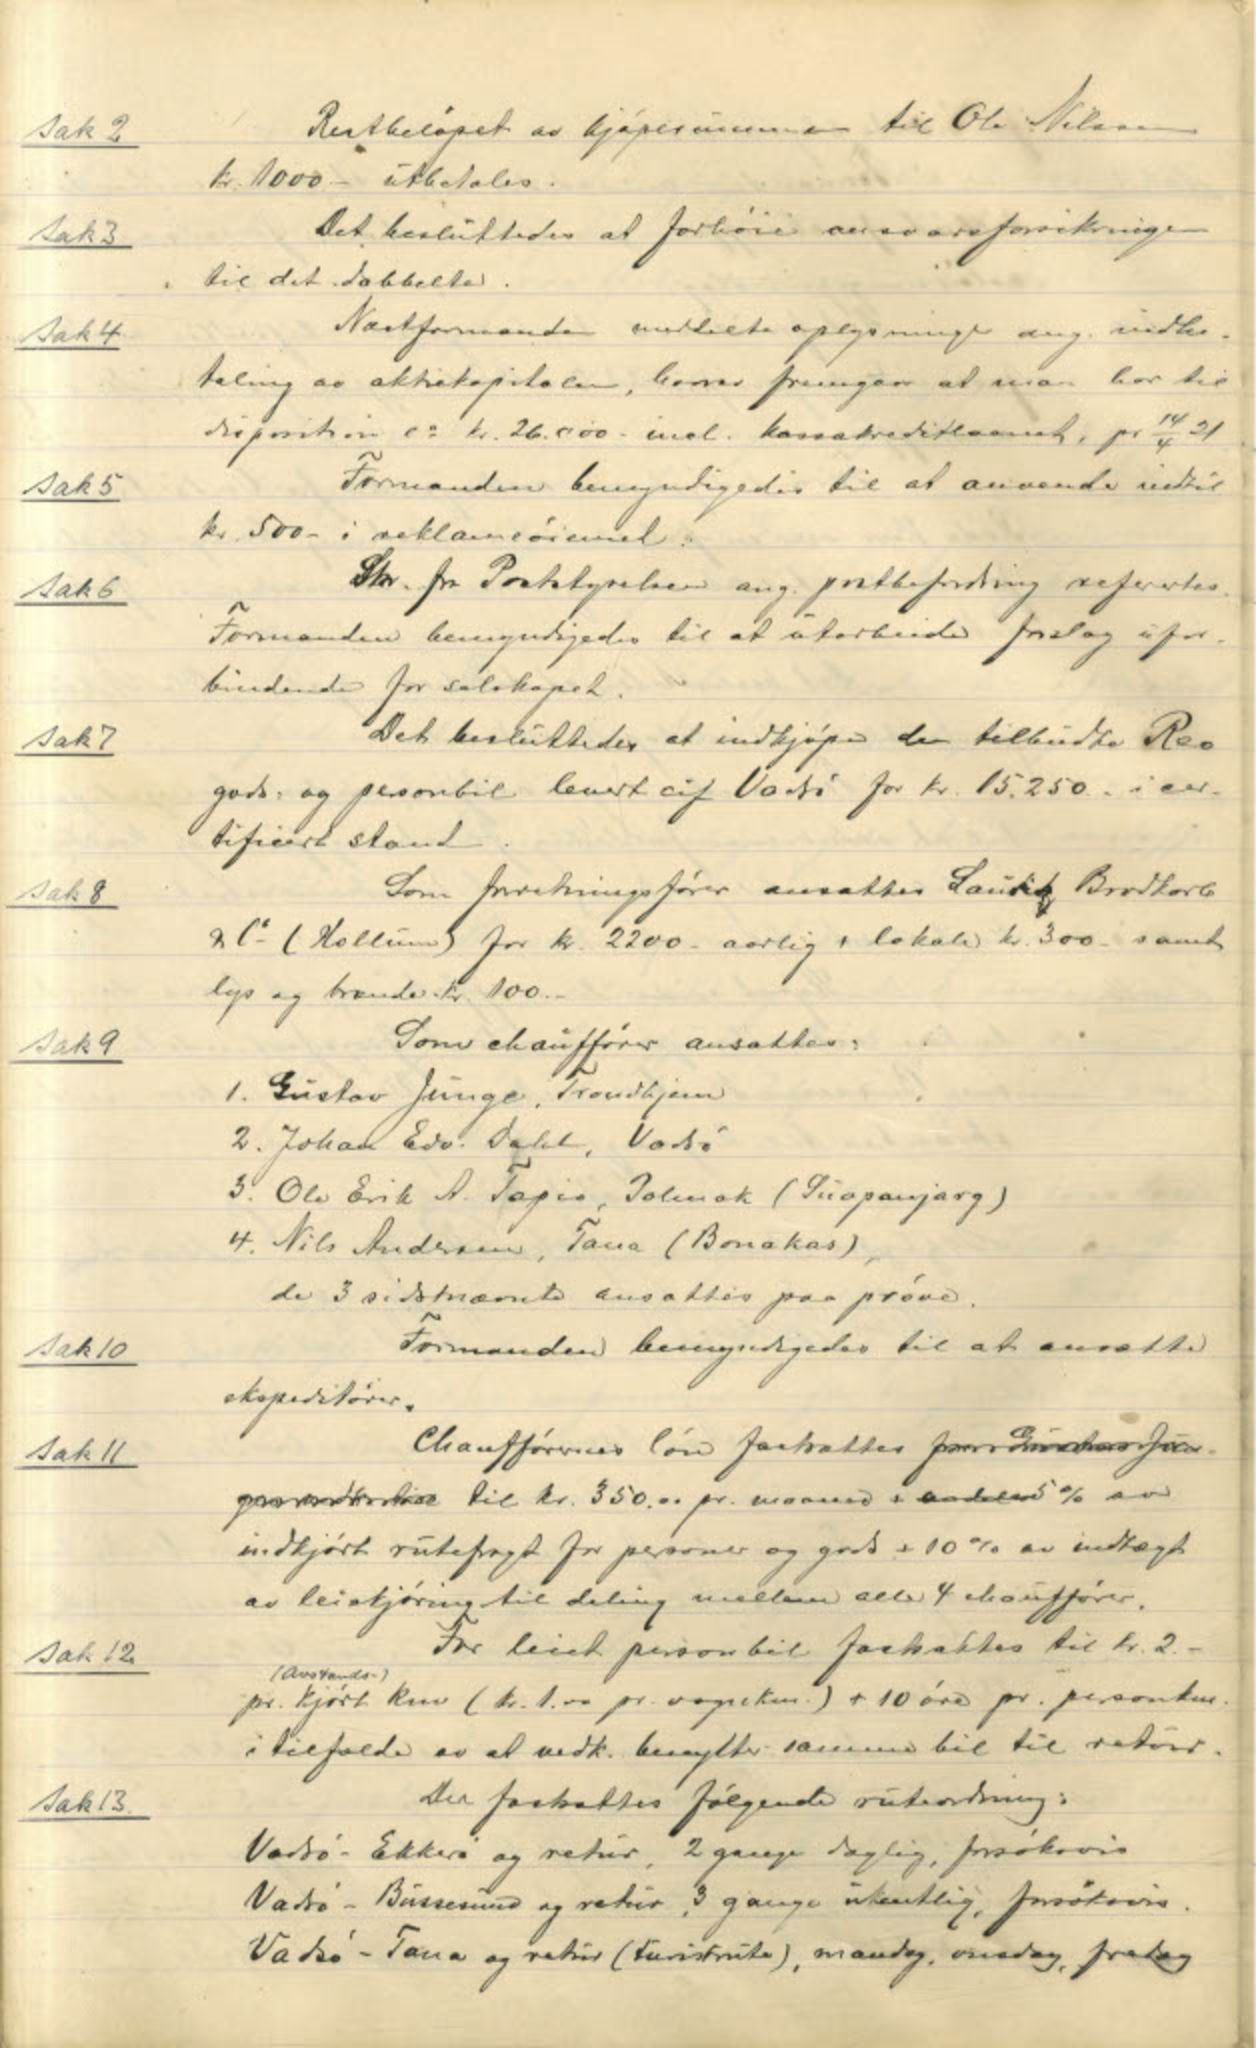 Sak 2 Restbeløpet av kjøpesummen til Ole Nilssen
kr. 1000.- utbetales.
Sak 3 Det besluttedes at forhøie ansvarsforsikringen
til det dobbelte.
Sak 4 Næstformanden meddelte oplysninger ang. indbe-
taling av aktiekapitalen, hvorav fremgaar at man har til
disposition ca kr. 26.000.- incl. kassakreditlaanet, pr 14/4 21
Sak 5 Formanden bemyndigedes til at anvende indtil
kr. 500.- i reklameøiemed.
Sak 6 Skr. fra Poststyrelsen ang. postbefordring refertes.
Formanden bemyndigedes til at utarbeide forslag ufor-
bindende for selskapet.
Sak 7 Det besluttedes at indkjøpe den tilbudte Reo
gods- og personbil levert cif Vadsø for kr. 15.250.- i cer-
tificert stand.
Sak 8 Som forretningsfører ansattes Lauritz Brodtkorb
& Co (Hollum) for kr. 2200.- aarlig + lokale kr. 300.- samt
lys og brænde kr. 100.-
Sak 9 Som chauffører ansattes:
1. Gustav Junge, Trondhjem
2. Johan Edv. Dahl, Vadsø
3. Ole Erik A. Tapio, Polmak (Suopanjarg)
4. Nils Andersen, Tana (Bonakas),
de 3 sidstnævnte ansattes paa prøve.
Sak 10 Formanden bemyndigedes til at ansætte
ekspeditører.
Sak 11 Chaufførernes løn fastsattes for Gustav Jun-
til kr. 350.00 pr. maaned + andelen 5% av
indkjørt rutefragt for personer og gods + 10% av indtægt
av leiekjøring til deling mellem alle 4 chauffører.
Sak 12. For leiet personbil fastsattes til kr. 2.-
(Avstands-)
pr. kjørt km (kr. 1.00 pr. vognkm.) + 10 øre pr. personkm.
i tilfælde av at vedk. benytter samme bil til retur.
Sak 13. Der fastsattes følgende ruteordning:
Vadsø - Ekkerø og retur, 2 gange daglig, forsøksvis
Vadsø - Bussesund og retur, 3 gange ukentlig, forsøksvis.
Vadsø - Tana og retur (turistrute), mandag, onsdag, fredag